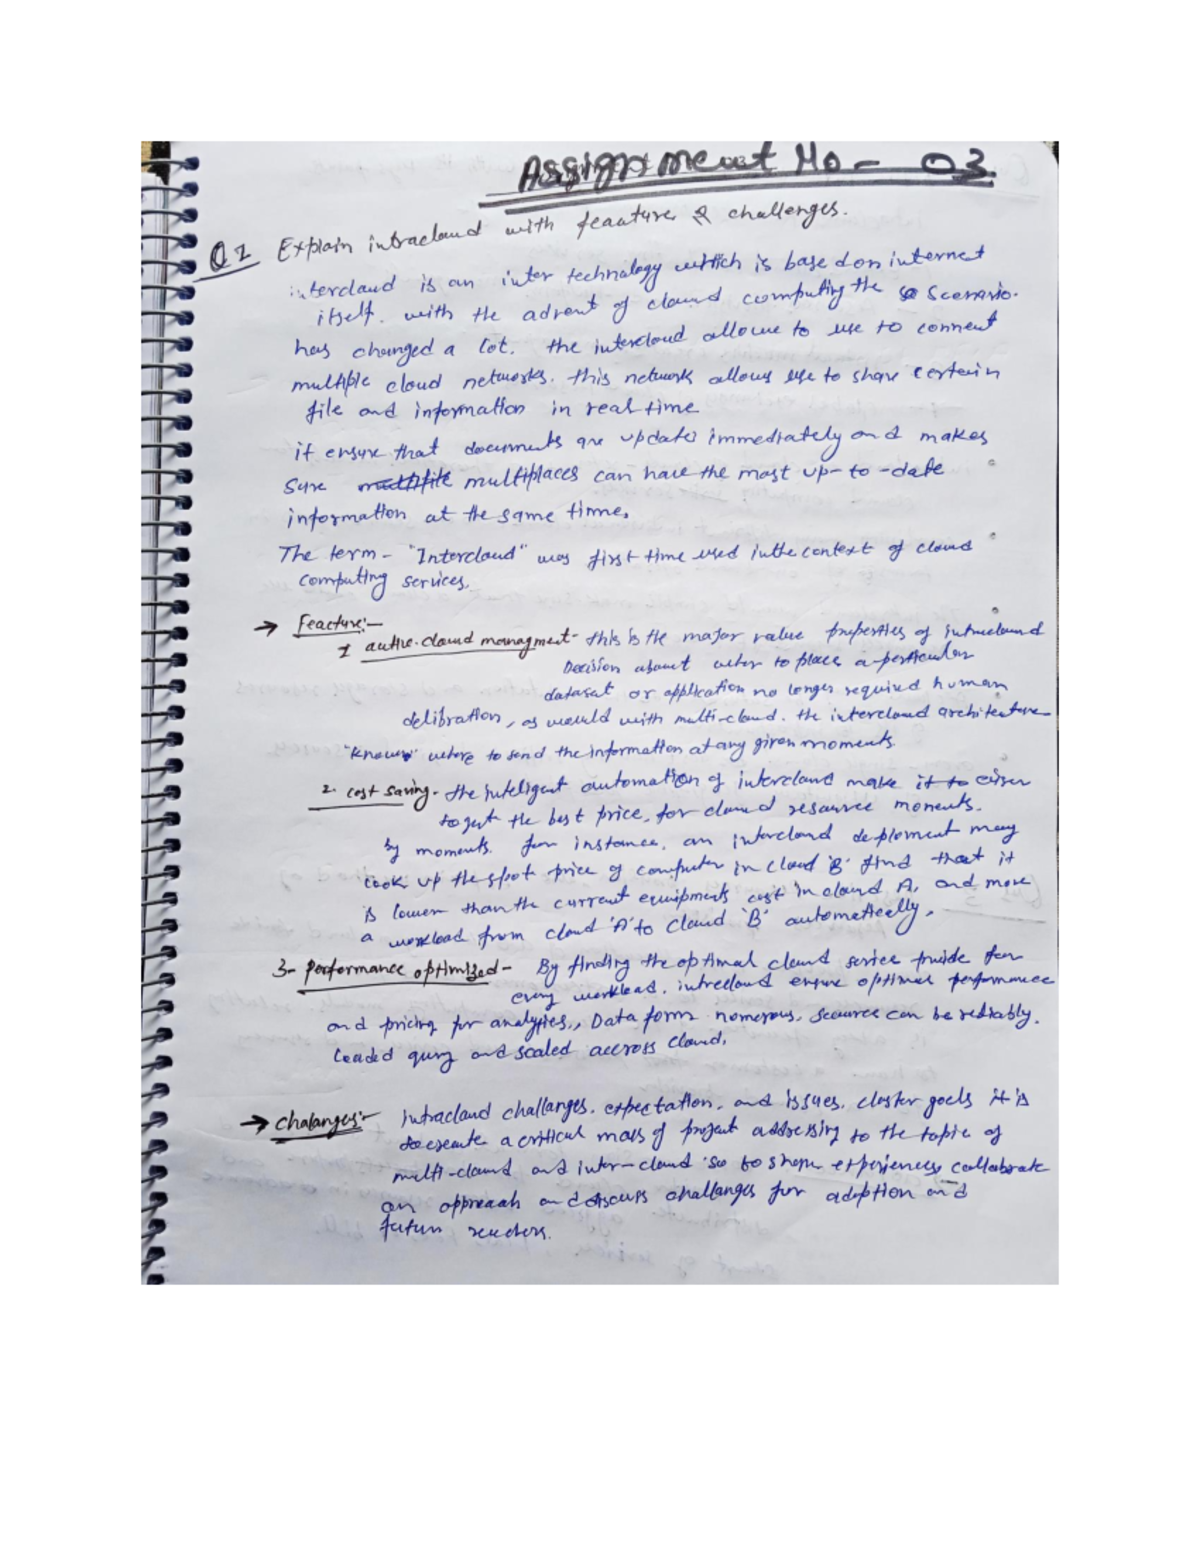 Assignment No - 03.
Q1 Explain intracloud with feauture & challenges.
intercloud is an inter technology which is based on internet
itself. with the advent of cloud computing the scenario.
has changed a lot. the intercloud allowe to use to connent
multiple cloud networks. this network allows use to share certein
file and information in real time
it ensure that documents are update immediately and makes
Sure multiplaces can have the most up-to-date
information at the same time.
The term - "Intercloud" was first time used in the context of cloud
computing services.
→ Feacture:-
1 cloud managment - this is the major value properties of intracloud
Decision about wher to place a particular
dataset or application no longer required human
delibration, as would with multi-cloud. the intercloud architecture
"Known" where to send the information at any given moments.
2. cost saving - the inteligent automation of intercloud make it to
to get the best price, for cloud resource moments.
by moments. for instance, an intercloud deploment may
look up the spot price of computer in cloud 'B' find that it
is lower than the current equipments cost in cloud A, and move
a workload from cloud 'A' to cloud 'B' automatically.
3- Performance optimized - By finding the optimal cloud service provide for
every workload. intrecloud ensure optimal performance
and pricing for analytics,, Data form nomerous, can be rediably.
Loaded query and scaled accross cloud.
→ Chalanges:- intracloud challanges. expectation, and issues. cluster goels it is
to create a critical mass of project addressing to the topic of
multi-cloud and inter-cloud so to share experiences, collabrate
on appreaah and discuss challanges for adoption and